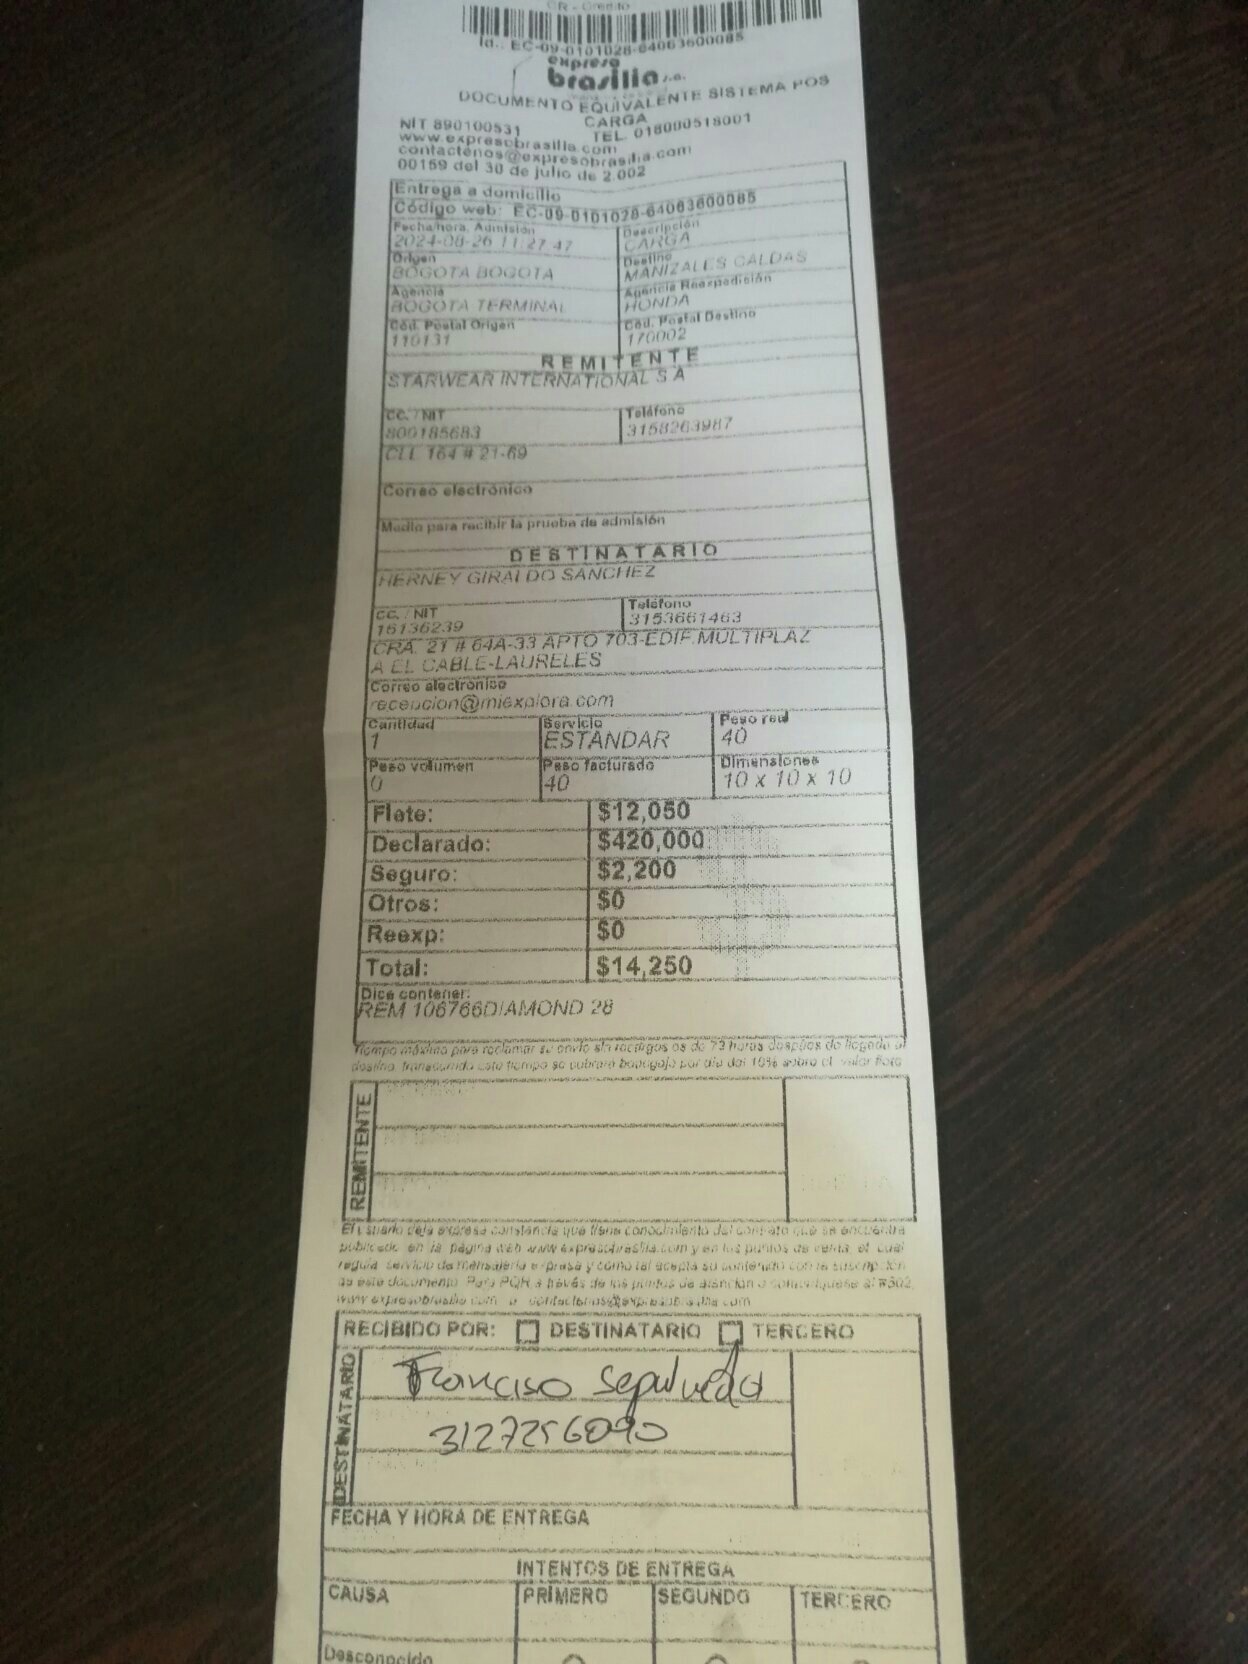 CR - Crédito
Id.: EC-09-0101028-64063600085
expreso
brasilia s.a.
DOCUMENTO EQUIVALENTE SISTEMA POS
CARGA
NIT 890100531 TEL. 018000518001
www.expresobrasilia.com
contactenos@expresobrasilia.com
00159 del 30 de julio de 2.002
Entrega a domicilio
Código web: EC-09-0101028-64063600085
Fecha/hora. Admisión Descripción
2024-08-26 11:27:47 CARGA
Origen Destino
BOGOTA BOGOTA MANIZALES CALDAS
Agencia Agencia Reexpedición
BOGOTA TERMINAL HONDA
Cód. Postal Origen Cód. Postal Destino
110131 170002
REMITENTE
STARWEAR INTERNATIONAL S A
CC. / NIT Teléfono
800185683 3158263987
CLL 164 # 21-69
Correo electrónico
Medio para recibir la prueba de admisión
DESTINATARIO
HERNEY GIRALDO SANCHEZ
CC. / NIT Teléfono
16136239 3153661463
CRA. 21 # 64A-33 APTO 703-EDIF.MULTIPLAZ
A EL CABLE-LAURELES
Correo electrónico
recepcion@miexplora.com
Cantidad Servicio Peso real
1 ESTANDAR 40
Peso volumen Peso facturado Dimensiones
0 40 10 x 10 x 10
Flete: $12,050
Declarado: $420,000
Seguro: $2,200
Otros: $0
Reexp: $0
Total: $14,250
Dice contener:
REM 106766DIAMOND 28
Tiempo máximo para reclamar su envío sin recargos es de 72 horas después de llegado al
destino, transcurrido este tiempo se cobrará bodegaje por día del 10% sobre el valor flete
REMITENTE
El usuario deja expresa constancia que tiene conocimiento del contrato que se encuentra
publicado en la página web www.expresobrasilia.com y en los puntos de venta, el cual
regula servicio de mensajería expresa y como tal acepta su contenido con la suscripción
de este documento. Para PQR a través de los puntos de atención o comuníquese al #502,
www.expresobrasilia.com o contactenos@expresobrasilia.com
RECIBIDO POR: DESTINATARIO TERCERO
DESTINATARIO
Francisco Sepulveda
3127256090
FECHA Y HORA DE ENTREGA
INTENTOS DE ENTREGA
CAUSA PRIMERO SEGUNDO TERCERO
Desconocido